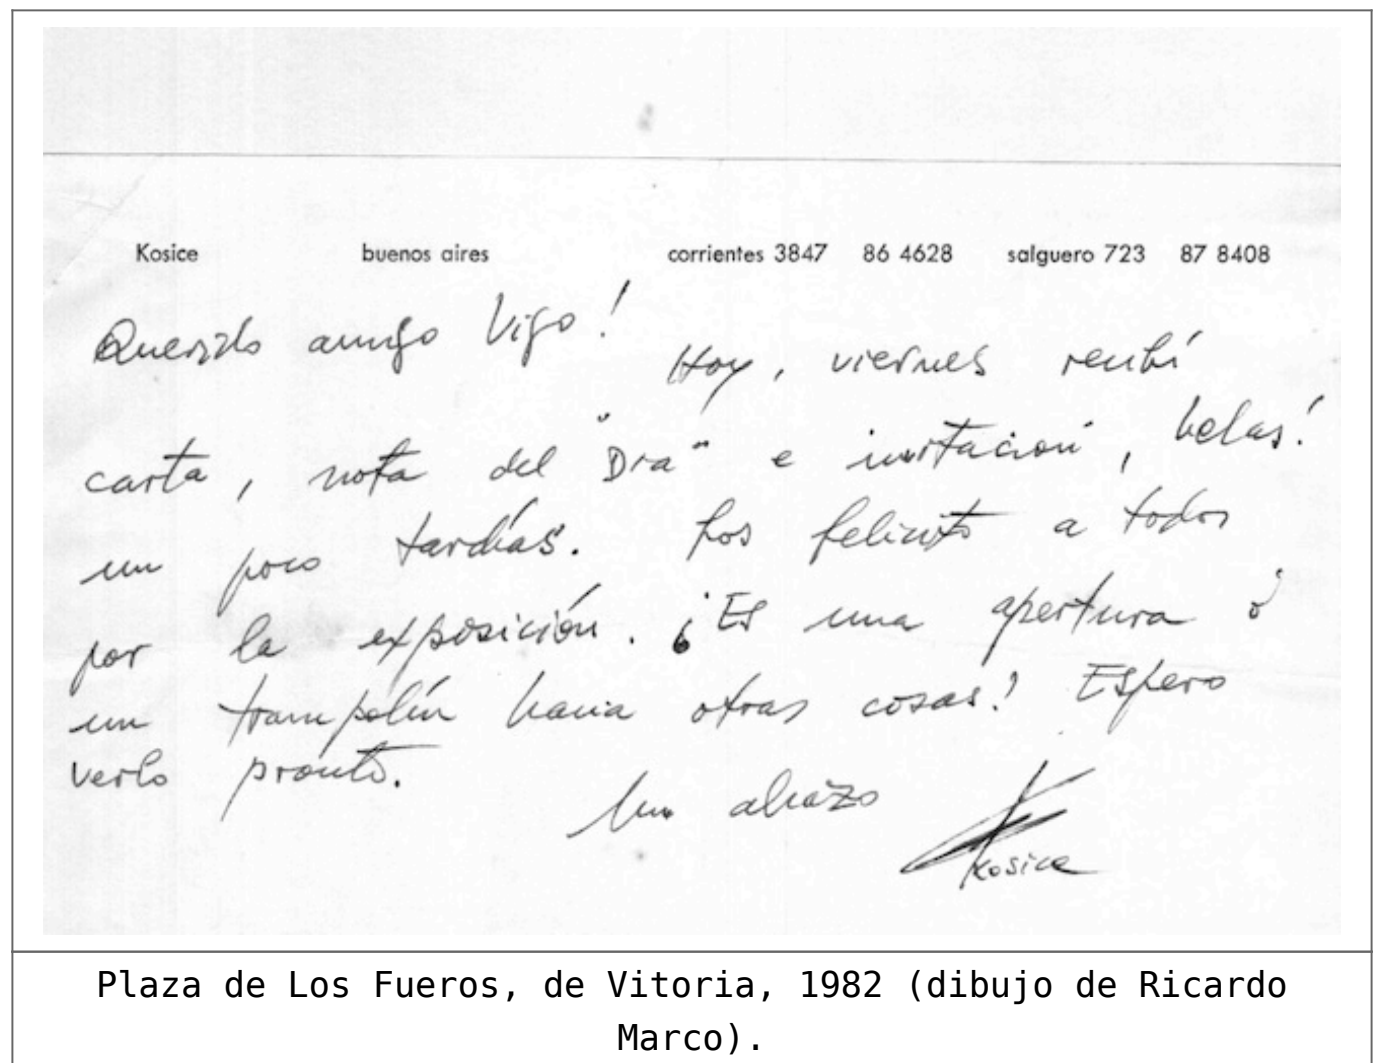 Kosice buenos aires corrientes 3847 86 4628 salguero 723 87 8408
Querido amigo Vigo!
Hoy, viernes recibí
carta, nota del "Dra" e invitación, helas!
un poco tardías. Los felicito a todos
por la exposición. ¿Es una apertura ó
un trampolín hacia otras cosas? Espero
verlo pronto.
Un abrazo
Kosice
Plaza de Los Fueros, de Vitoria, 1982 (dibujo de Ricardo
Marco).